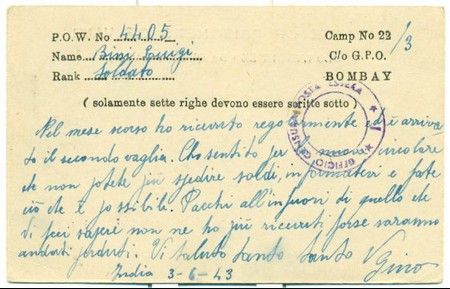 P.O.W. No 4405 Camp No 22/3
Name Bini Luigi C/o G.P.O.
Rank Soldato BOMBAY
( solamente sette righe devono essere scritte sotto )
UFFICIO CENSURA POSTA ESTERA
Nel mese scorso ho ricevuto regolarmente ed è arriva
to il secondo vaglia. Ho sentito per circolare
che non potete più spedire soldi, informatevi e fate
ciò che è possibile. Pacchi all'infuori di quello che
vi feci sapere non ne ho più ricevuti forse saranno
andati perduti. Vi saluto tanto tanto Gino
India 3-6-43